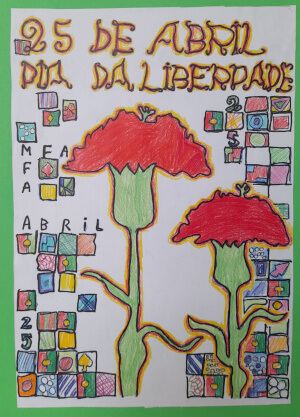 25 DE ABRIL
DIA DA LIBERDADE
25
M FA
F
A
ABRIL
25